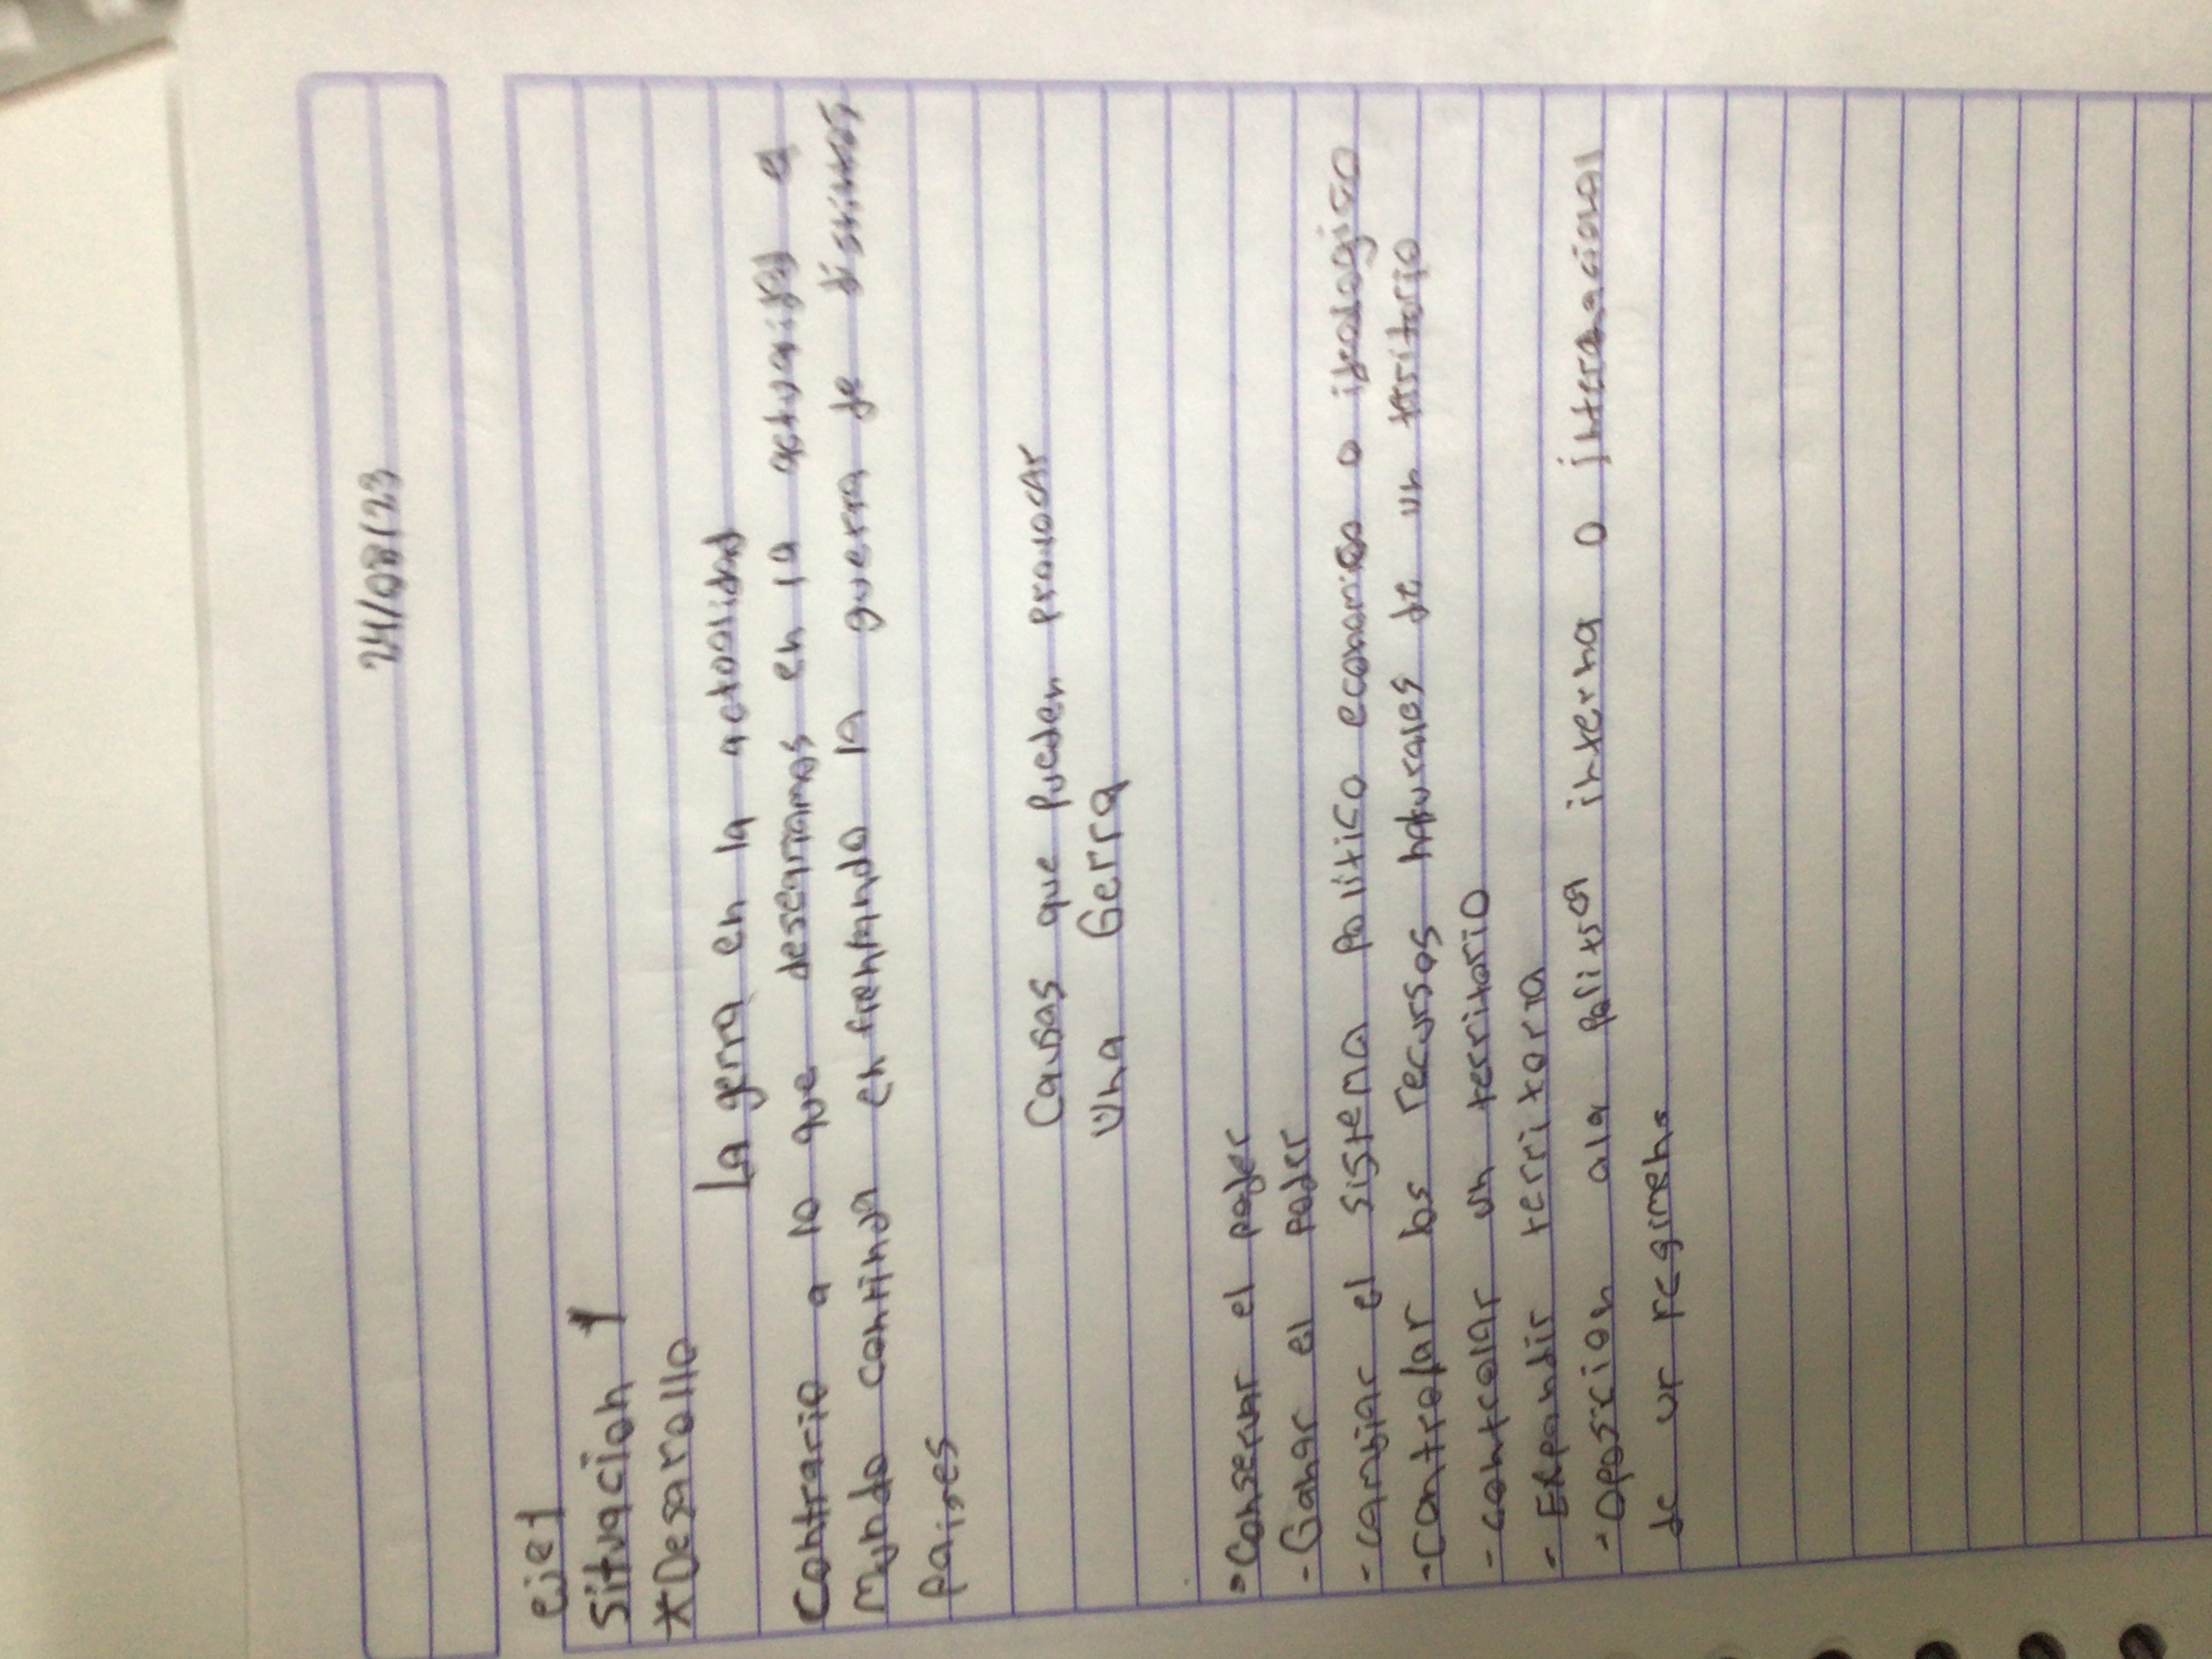 24/08/23
eje1
Situacion 1
*Desarollo
La gerra en la actoalidad
Contrario a lo que deseamos en la actualidad e
Mundo continua en frentando la guerra de distintos
Paises
Causas que Pueden provocar
Una Gerra
- Conservar el poder
- Ganar el poder
- cambiar el sistema politico economico o ideologico
- Controlar los recursos naturales de un territorio
- controlar un territorio
- Expandir territorra
- Oposicion ala Politca interna o internacional
de ur regimens